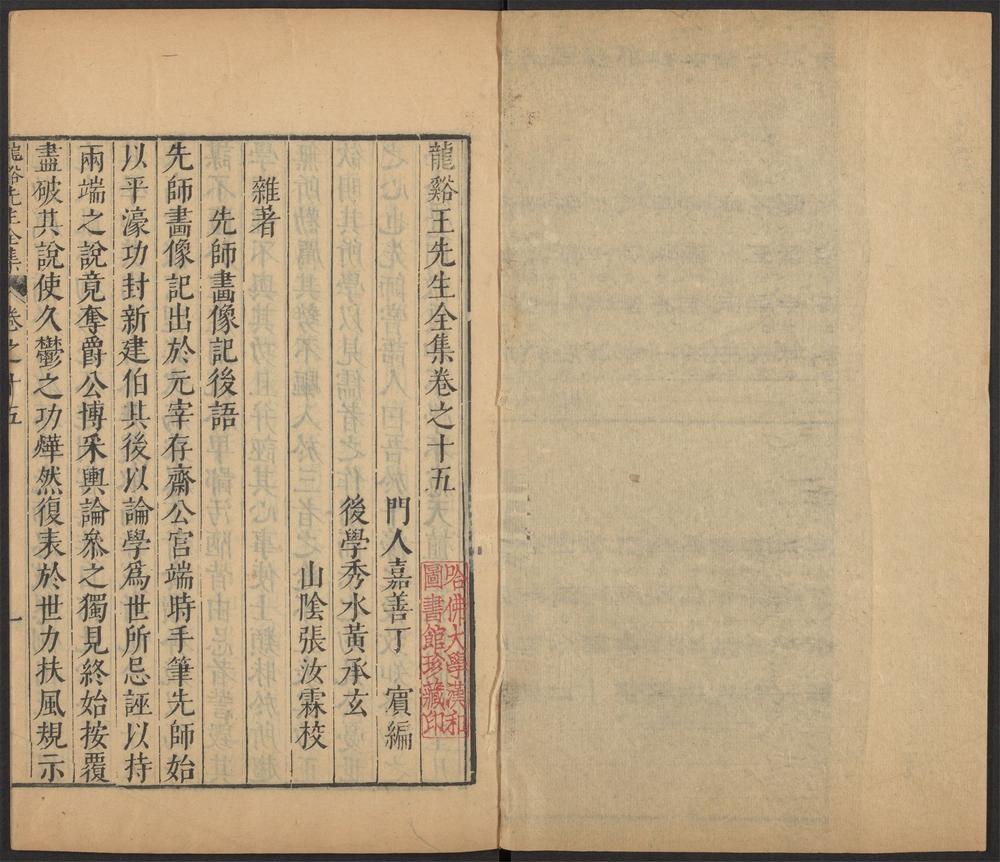 龍谿王先生全集卷之十五
門人嘉善丁賓編
後學秀水黃承玄
山陰張汝霖校
雜著
先師畫像記後語
先師畫像記出於元宰存齋公官端時手筆先師始
以平濠功封新建伯其後以論學爲世所忌誣以持
兩端之說竟奪爵公博采輿論叅之獨見終始按覆
盡破其說使久鬱之功燁然復表於世力扶風規示
龍谿先生全集
卷之十五
一
哈佛大學漢和
圖書館珍藏印